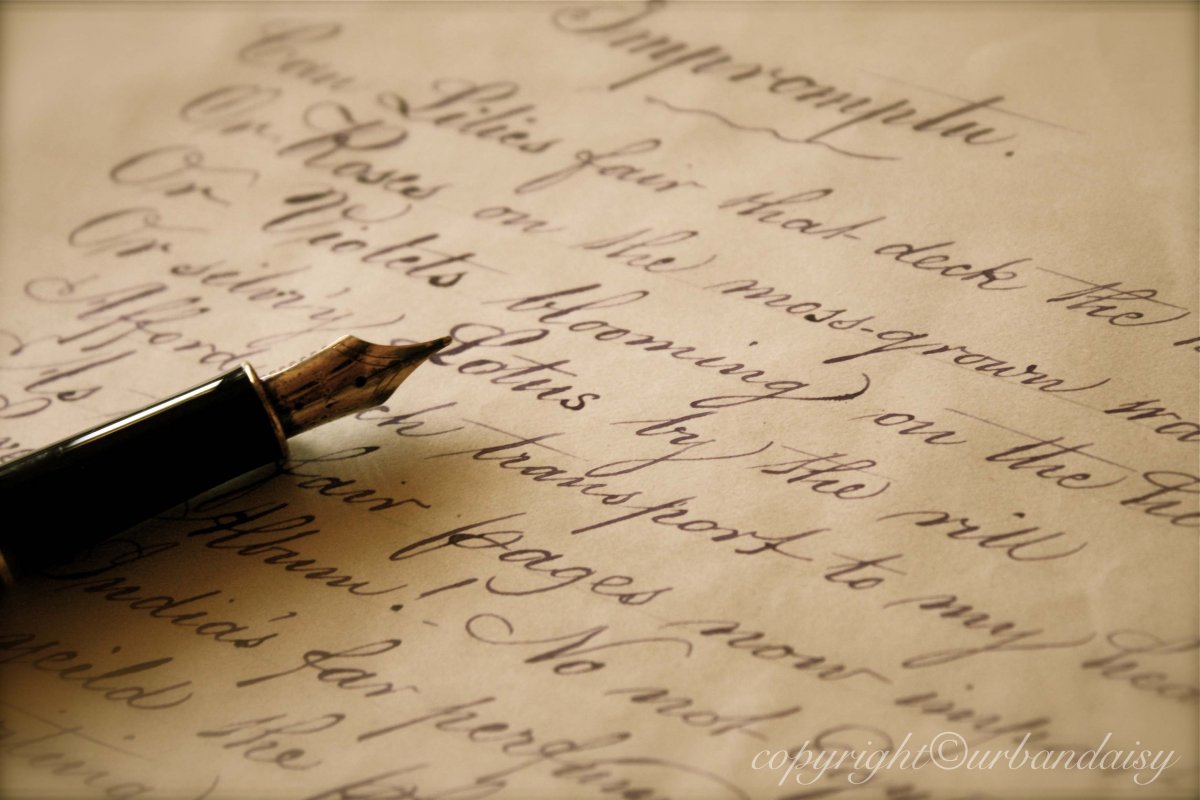 Impromptu.
Can Lilies fair that deck the
Or Roses on the moss-grown
Or Violets blooming on the
Or seiln'y Lotus by the rill
Afford transport to my
It's fair pages now
Album! No not
India's far
yeild the
copyright©urbandaisy